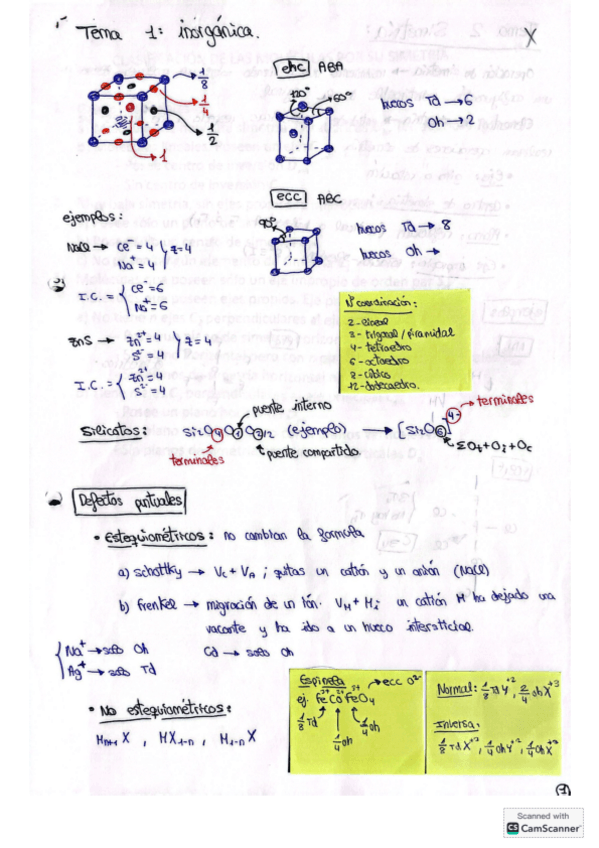 Tema 1: inorgánica.
X
1/8
1/4
1/2
1
ehc ABA
120° 60°
huecos Td → 6
Oh → 2
ecc ABC
90°
huecos Td → 8
huecos Oh →
ejemplos:
NaCl → Cl⁻ = 4
Na⁺ = 4
Z=4
I.C. = Cl⁻ = 6
Na⁺ = 6
ZnS → Zn²⁺ = 4
S²⁻ = 4
Z = 4
I.C. = Zn²⁺ = 4
S²⁻ = 4
Nº coordinación:
2 - lineal
3 - trigonal / piramidal
4 - tetraedro
6 - octaedro
8 - cúbico
12 - dodecaedro.
puente interno
Silicatos: Si2O4O1O2/2 (ejemplo) → [Si2O6]4-
terminales
terminales
puente compartido
ΣOt + O2 + Oc
Defectos puntuales
• Estequiométricos: no cambian la fórmula
a) schottky → Vc + VA ; quitas un catión y un anión (NaCl)
b) frenkel → migración de un ión. VM + Hi un catión M ha dejado una
vacante y ha ido a un hueco intersticial.
Na⁺ → solo Oh
Ag⁺ → solo Td
Cd → solo Oh
• No estequiométricos:
Mn+1 X , MX1-n , M1-n X
Espinela → ecc O²⁻
ej. FeCoFeO4
1/8 Td
1/4 oh
1/4 oh
Normal: 1/8 Td Y⁺², 2/4 oh X⁺³
Inversa:
1/8 Td X⁺³, 1/4 oh Y⁺², 1/4 oh X⁺³
(1)
Scanned with
CS CamScanner